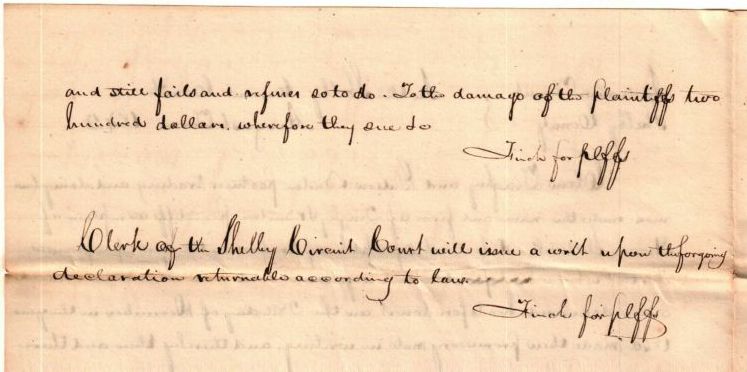 and still fails and refuses so to do. To the damage of the plaintiffs two
hundred dollars. wherefore they sue &c
Finch for plffs
Clerk of the Shelby Circuit Court will issue a writ upon the forgoing
declaration returnable according to law.
Finch for plffs